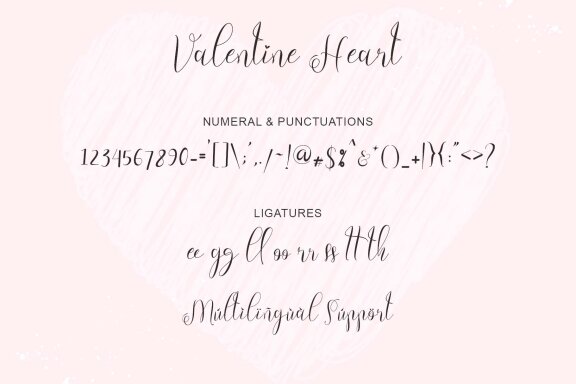 Valentine Heart
NUMERAL & PUNCTUATIONS
1234567890-='[]\;',./~!@#$%^&*()_+|}{:"<>?
LIGATURES
ee gg ll oo rr ss tt th
Múltilíngùàl Súpport